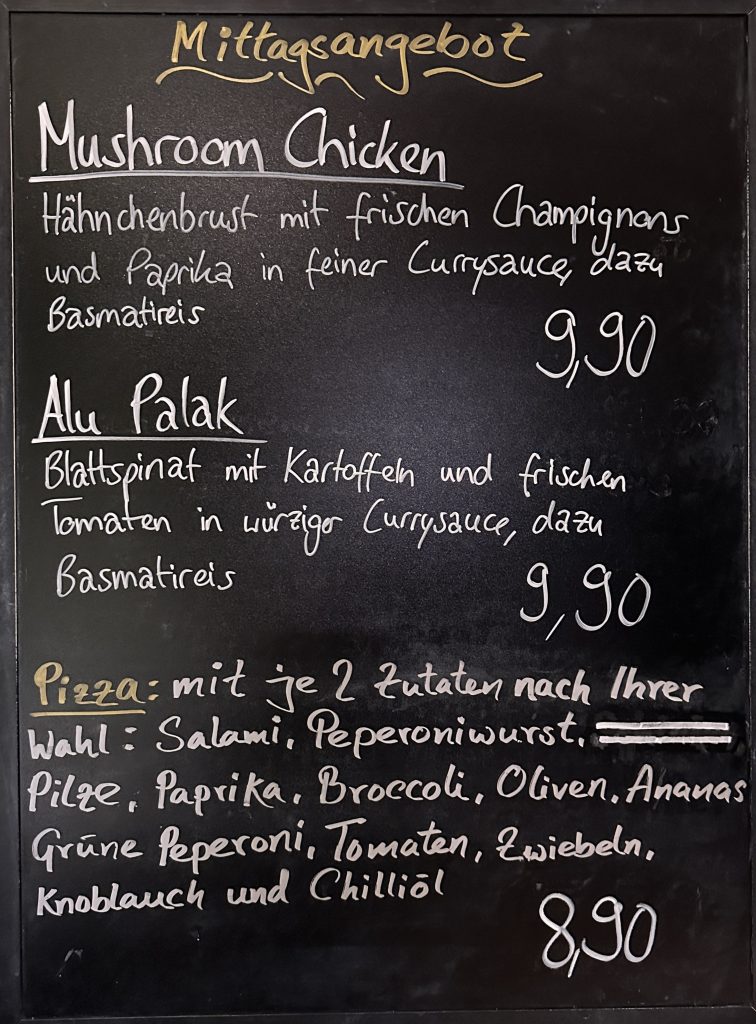 Mittagsangebot
Mushroom Chicken
Hähnchenbrust mit frischen Champignons
und Paprika in feiner Currysauce, dazu
Basmatireis
9,90
Alu Palak
Blattspinat mit Kartoffeln und frischen
Tomaten in würziger Currysauce, dazu
Basmatireis
9,90
Pizza: mit je 2 Zutaten nach Ihrer
Wahl: Salami, Peperoniwurst,
Pilze, Paprika, Broccoli, Oliven, Ananas
Grüne Peperoni, Tomaten, Zwiebeln,
Knoblauch und Chilliöl
8,90